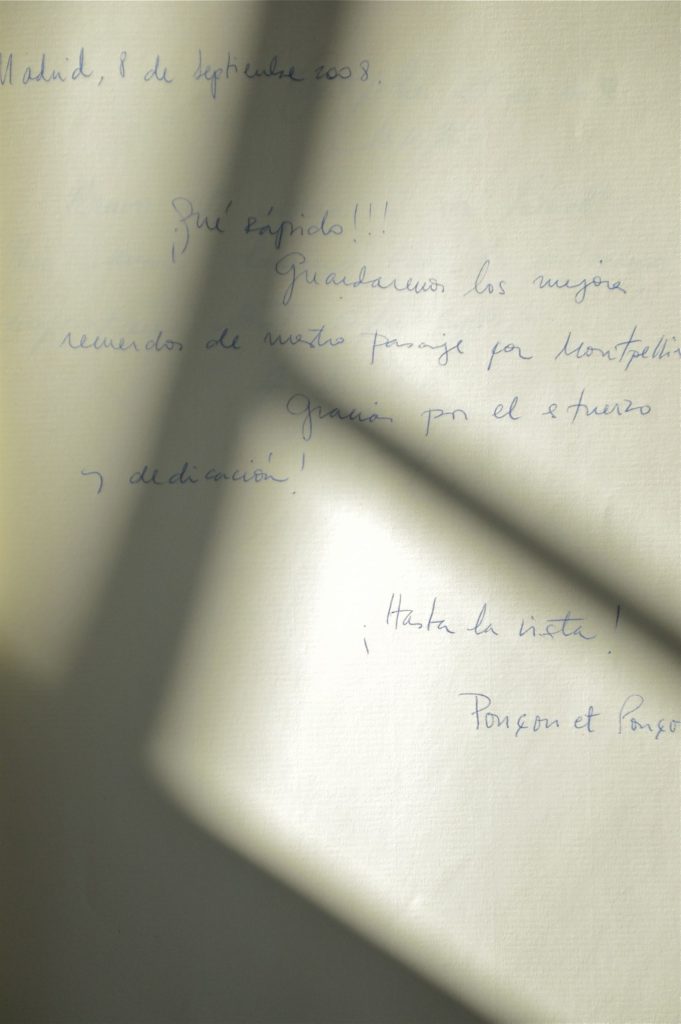 Madrid, 8 de Septiembre 2008.
¡Qué rápido!!!
Guardaremos los mejores
recuerdos de nuestro pasaje por Montpellier
Gracias por el esfuerzo
y dedicación!
¡Hasta la vista!
Ponçon et Ponço